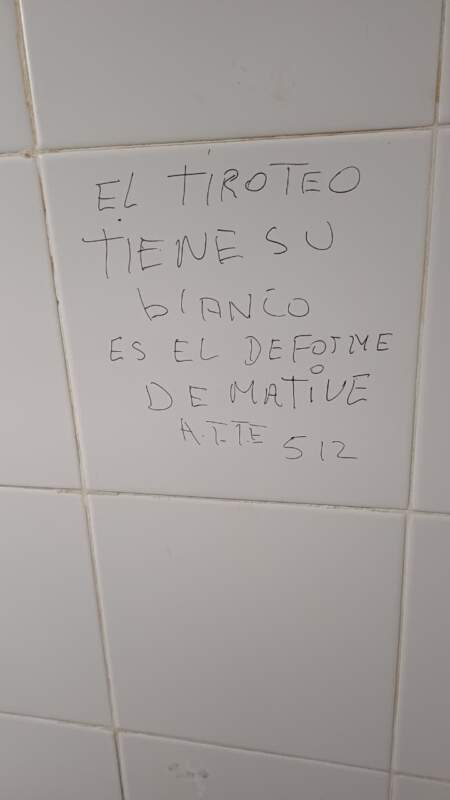 EL TIROTEO
TIENE SU
blANCO
ES EL DEFORME
DE MATIVE
A.T.TE 512